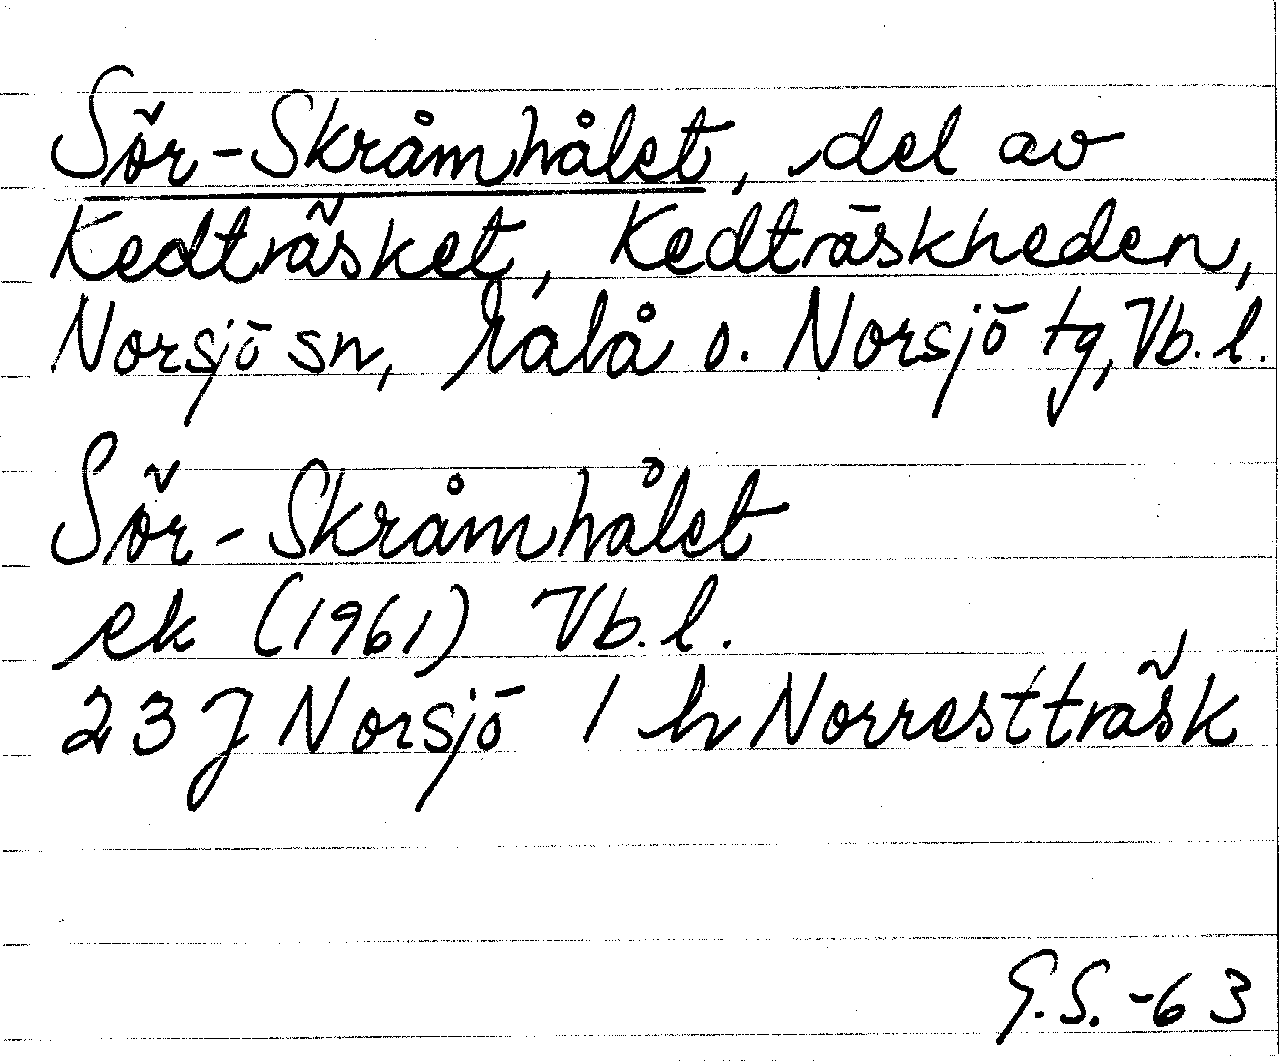 Sör-Skråmhålet, del av
Kedträsket, Kedträskheden,
Norsjö sn, Malå o. Norsjö tg, Vb. l.
Sör-Skråmhålet
ek (1961) Vb. l.
23 J Norsjö 1 h Norrestträsk
G.S. -63